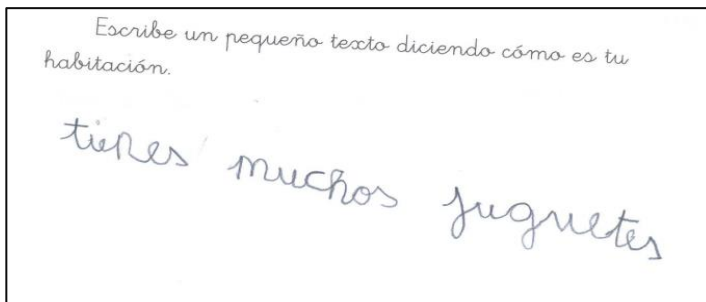 Escribe un pequeño texto diciendo cómo es tu
habitación.
tienes muchos juguetes